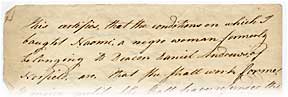 This certifies, that the conditions on which I
bought Naomi, a negro woman formerly
belonging to Deacon Daniel Andrews
are, that she shall work for me